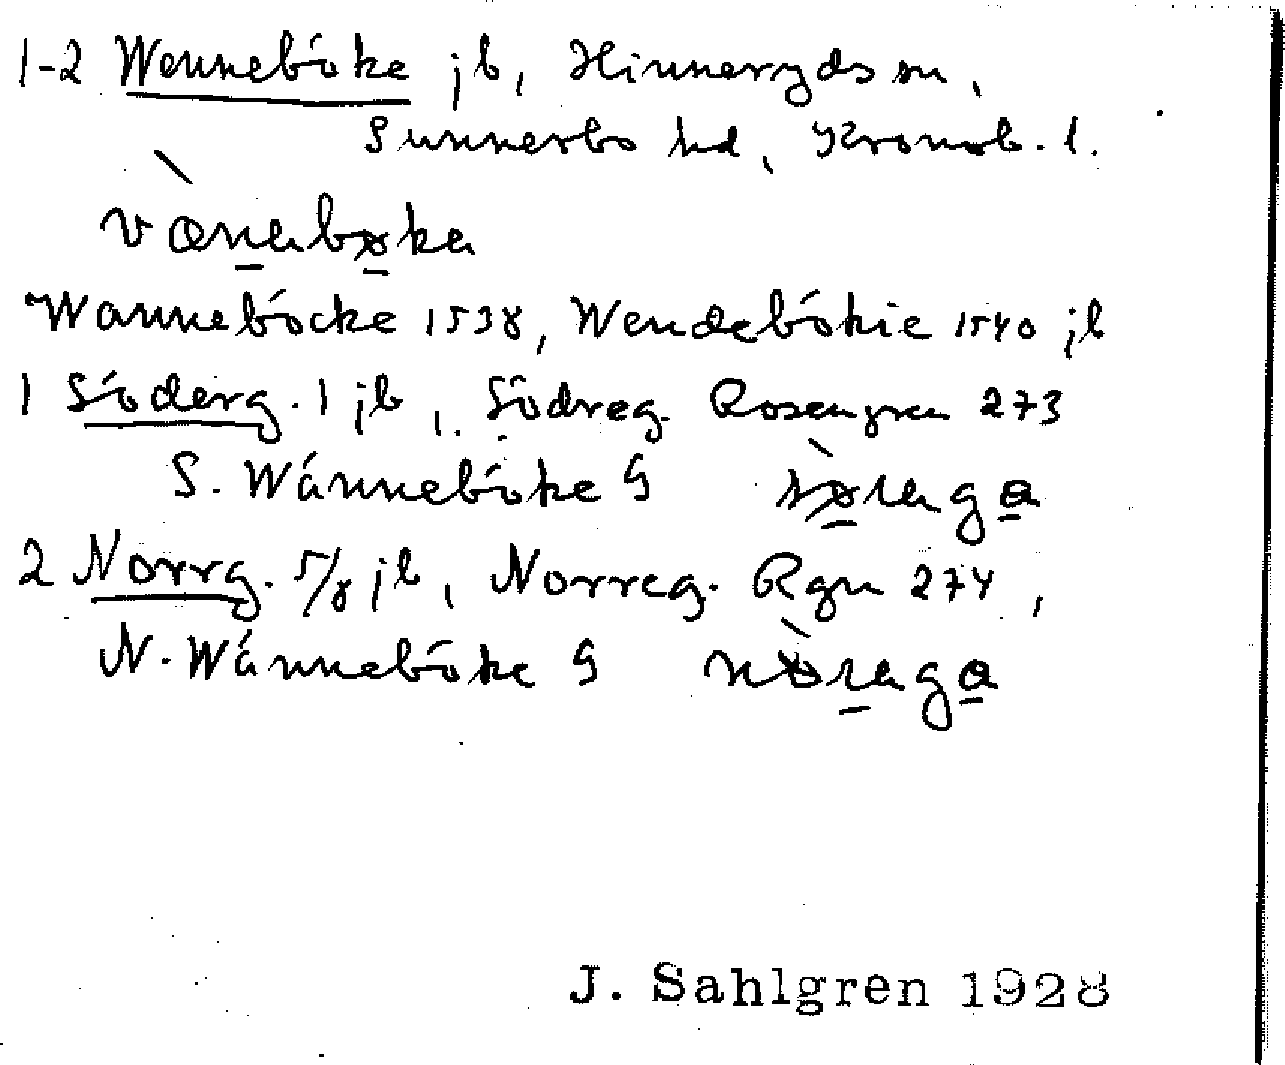 1-2 Wenneböke jb, Hinneryds sn,
Sunnerbo hd, Kronob. l.
vànabøka
Wanneböcke 1538, Wendebökie 1540 jb
1 Söderg. 1 jb, Södreg. Rosengren 273
S. Wänneböke G sø̀raga
2 Norrg. 5/8 jb, Norreg. Rgn 274,
N. Wänneböke G nòraga
J. Sahlgren 1928